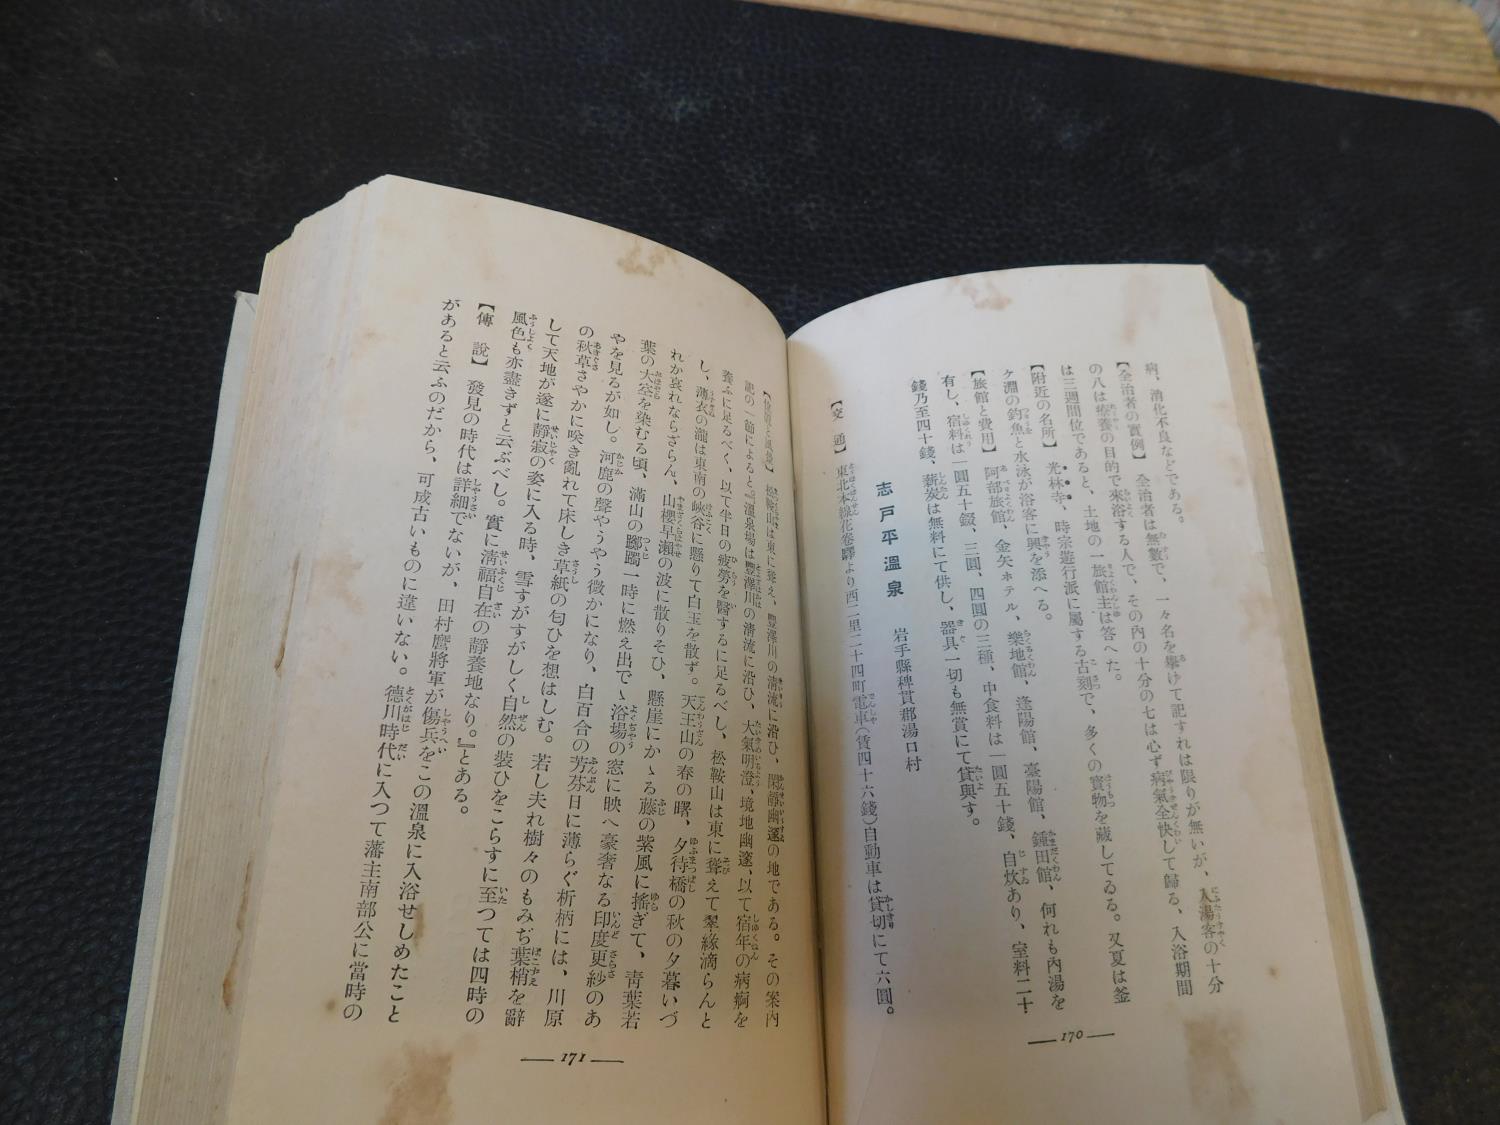 病、消化不良などである。
【全治者の實例】　全治者は無數で、一々名を擧げて記すれば限りが無いが、入湯客の十分
の八は療養の目的で來浴する人で、その内の十分の七は心ず病氣全快して歸る、入浴期間
は三週間位であると、土地の一旅館主は答へた。
【附近の名所】　光林寺、時宗遊行派に屬する古刻で、多くの寶物を藏してゐる。又夏は釜
ケ淵の釣魚と水泳が浴客に興を添へる。
【旅館と費用】　阿部旅館、金矢ホテル、樂地館、逢陽館、臺陽館、鍾田館、何れも内湯を
有し、宿料は一圓五十錣、三圓、四圓の三種、中食料は一圓五十錢、自炊あり、室料二十
錢乃至四十錢、薪炭は無料にて供し、器具一切も無賞にて貸與す。
志戸平溫泉　岩手縣稗貫郡湯口村
【交　通】　東北本線花卷驛より西二里二十四町電車(賃四十六錢)自動車は貸切にて六圓。
— 170 —
【位置と風景】　松鞍山は東に聳え、豐澤川の淸流に沿ひ、閑靜幽邃の地である。その案内
記の一節によると『溫泉場は豐澤川の淸流に沿ひ、大氣明澄、境地幽邃、以て宿年の病痾を
養ふに足るべく、以て半日の疲勞を醫するに足るべし、松鞍山は東に聳えて翠綠滴らんと
し、薄衣の瀧は東南の峽谷に懸りて白玉を散ず。天王山の春の曙、夕待橋の秋の夕暮いづ
れか哀れならざらん、山櫻早瀨の波に散りそひ、懸崖にかゝる藤の紫風に搖ぎて、靑葉若
葉の大空を染むる頃、滿山の躑躅一時に燃え出でゝ浴場の窓に映へ豪奢なる印度更紗のあ
やを見るが如し。河鹿の聲やうやう微かになり、白百合の芳芬日に薄らぐ析柄には、川原
の秋草さやかに咲き亂れて床しき草紙の匂ひを想はしむ。若し夫れ樹々のもみぢ葉梢を辭
して天地が遂に靜寂の姿に入る時、雪すがすがしく自然の装ひをこらすに至つては四時の
風色も亦盡きずと云ぶべし。實に淸福自在の靜養地なり。』とある。
【傳　說】　發見の時代は詳細でないが、田村麿將軍が傷兵をこの溫泉に入浴せしめたこと
があると云ふのだから、可成古いものに違いない。德川時代に入つて藩主南部公に當時の
— 171 —